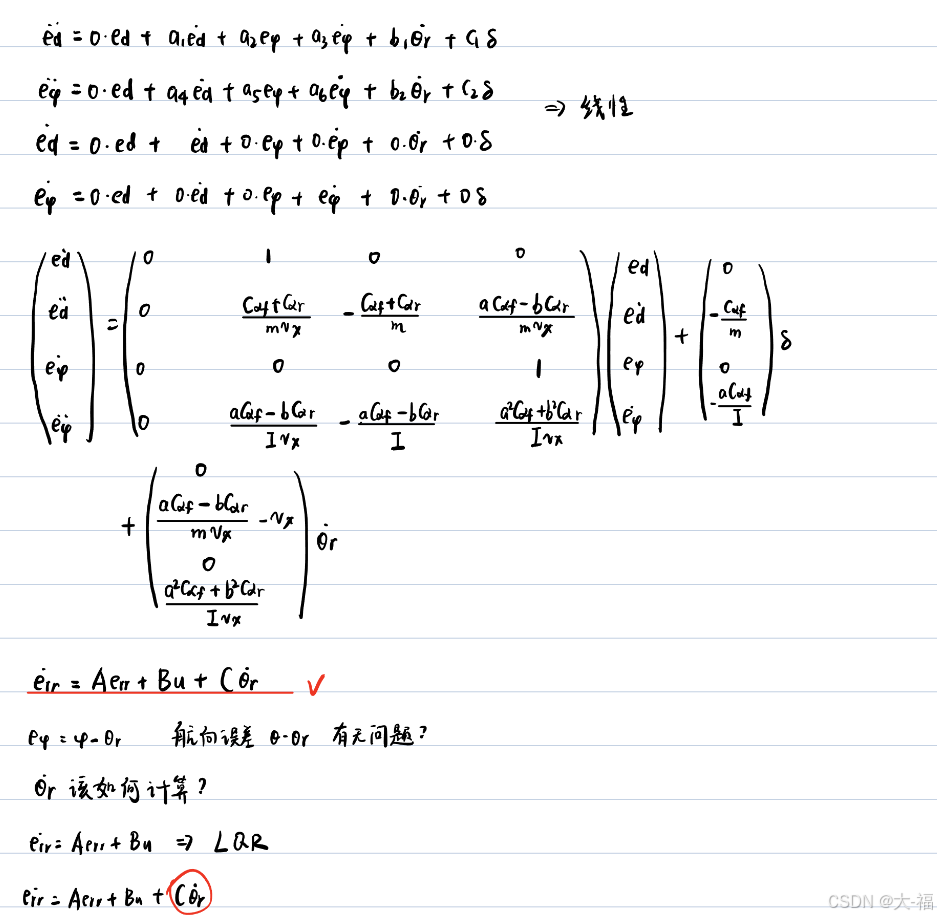 ëd = 0·ed + a₁ėd + a₂eφ + a₃ėφ + b₁θ̇r + C₁δ
ëφ = 0·ed + a₄ėd + a₅eφ + a₆ėφ + b₂θ̇r + C₂δ
⇒ 线性
ėd = 0·ed + ėd + 0·eφ + 0·ėφ + 0·θ̇r + 0·δ
ėφ = 0·ed + 0·ėd + 0·eφ + ėφ + 0·θ̇r + 0δ
(ėd; ëd; ėφ; ëφ) = (0, 1, 0, 0; 0, (Cαf+Cαr)/(mvx), -(Cαf+Cαr)/m, (aCαf-bCαr)/(mvx); 0, 0, 0, 1; 0, (aCαf-bCαr)/(Ivx), -(aCαf-bCαr)/I, (a²Cαf+b²Cαr)/(Ivx)) (ed; ėd; eφ; ėφ) + (0; -Cαf/m; 0; -aCαf/I) δ
+ (0; (aCαf-bCαr)/(mvx) - vx; 0; (a²Cαf+b²Cαr)/(Ivx)) θ̇r
ėrr = Aerr + Bu + Cθ̇r ✓
eφ = φ-θr 航向误差 θ-θr 有无问题?
θ̇r 该如何计算?
ėrr = Aerr + Bu ⇒ LQR
ėrr = Aerr + Bu + Cθ̇r
CSDN @大-福